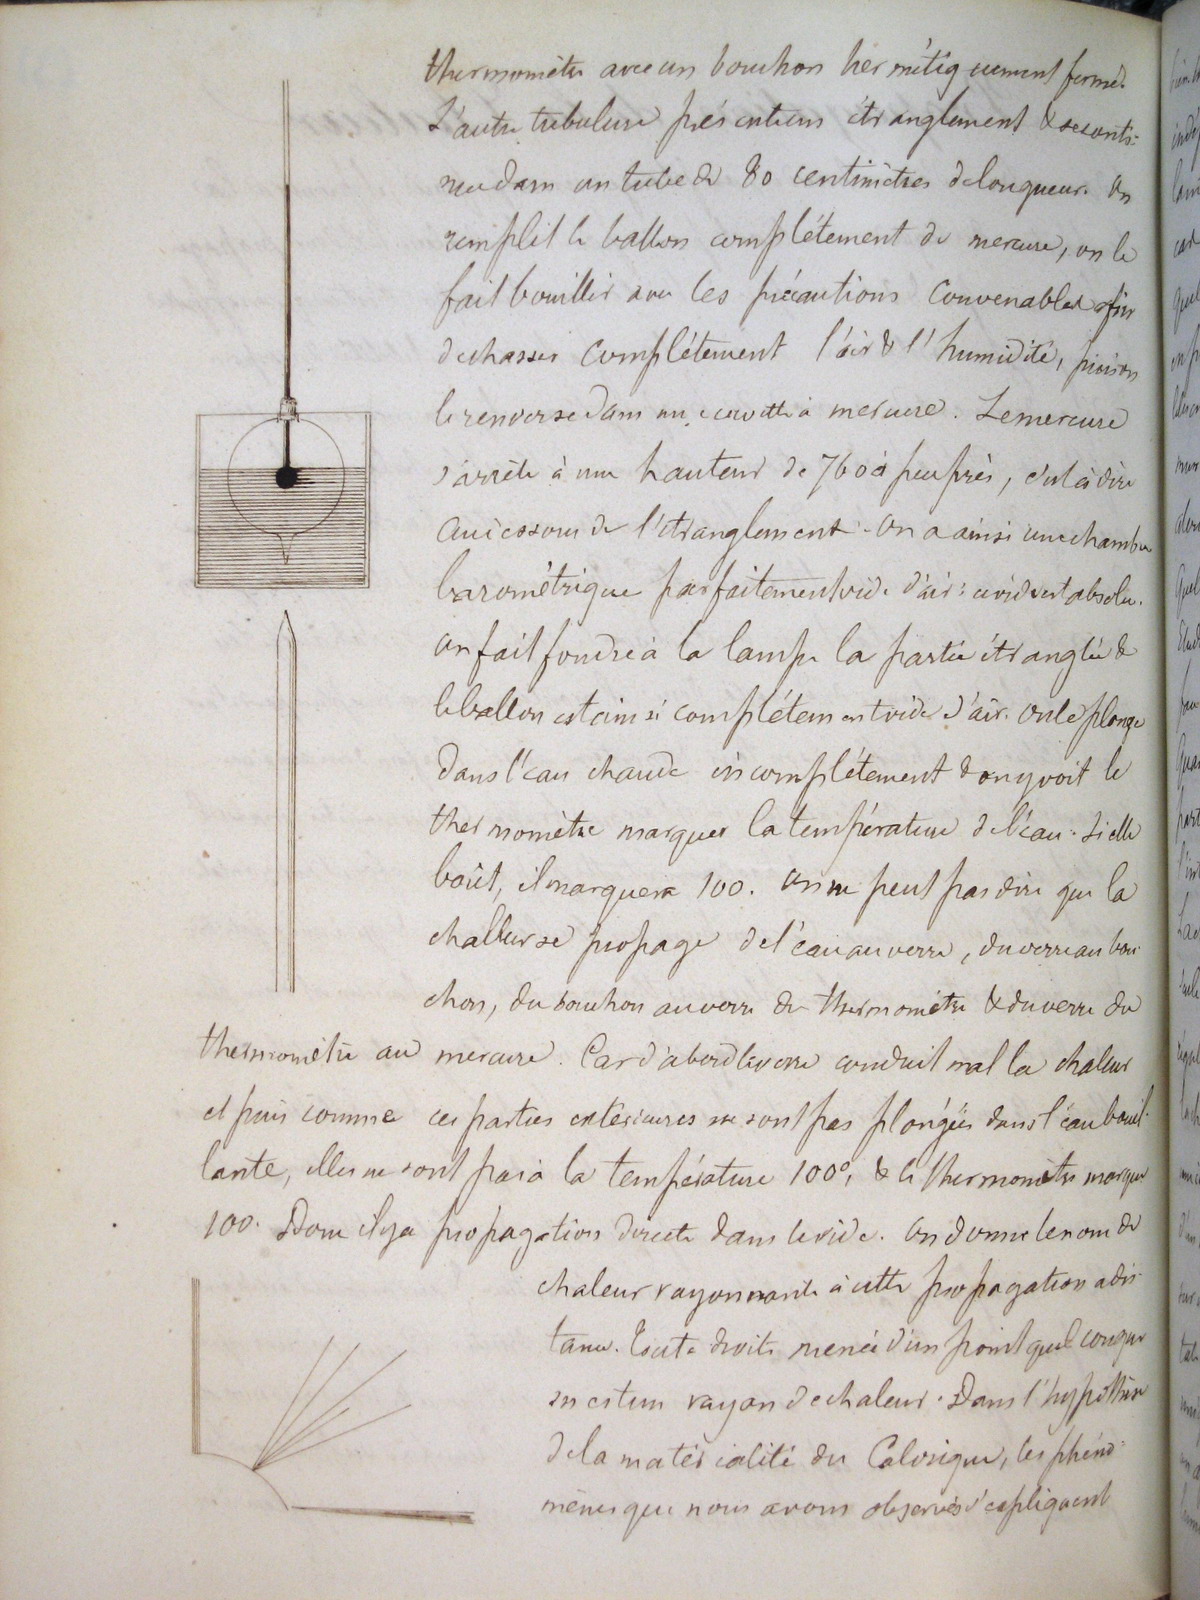 thermomètre avec un bouchon hermétiquement fermé.
L'autre tubulure présente un étranglement & se conti-
nue dans un tube de 80 centimètres de longueur. On
remplit le ballon complétement de mercure, on le
fait bouillir avec les précautions convenables afin
de chasser complétement l'air & l'humidité, puis on
le renverse dans une cuvette à mercure. Le mercure
s'arrête à une hauteur de 760 à peu près, c'est à dire
au dessous de l'étranglement. On a ainsi une chambre
barométrique parfaitement vide d'air : ce vide est absolu.
On fait fondre à la lampe la partie étranglée &
le ballon est ainsi complétement vide d'air. On le plonge
dans l'eau chaude incomplétement & on y voit le
thermomètre marquer la température de l'eau. Si elle
bout, il marquera 100. On ne peut pas dire que la
chaleur se propage de l'eau au verre, du verre au bou-
chon, du bouchon au verre du thermomètre & du verre du
thermomètre au mercure. Car d'abord le verre conduit mal la chaleur
et puis comme ces parties extérieures ne sont pas plongées dans l'eau bouil-
lante, elles ne sont pas à la température 100°, & le thermomètre marque
100. Donc il y a propagation directe dans le vide. On donne le nom de
chaleur rayonnante à cette propagation à dis-
tance. Toute droite menée d'un point quelconque
en est un rayon de chaleur. Dans l'hypothèse
de la matérialité du Calorique, les phéno-
mènes que nous avons observés s'expliquent